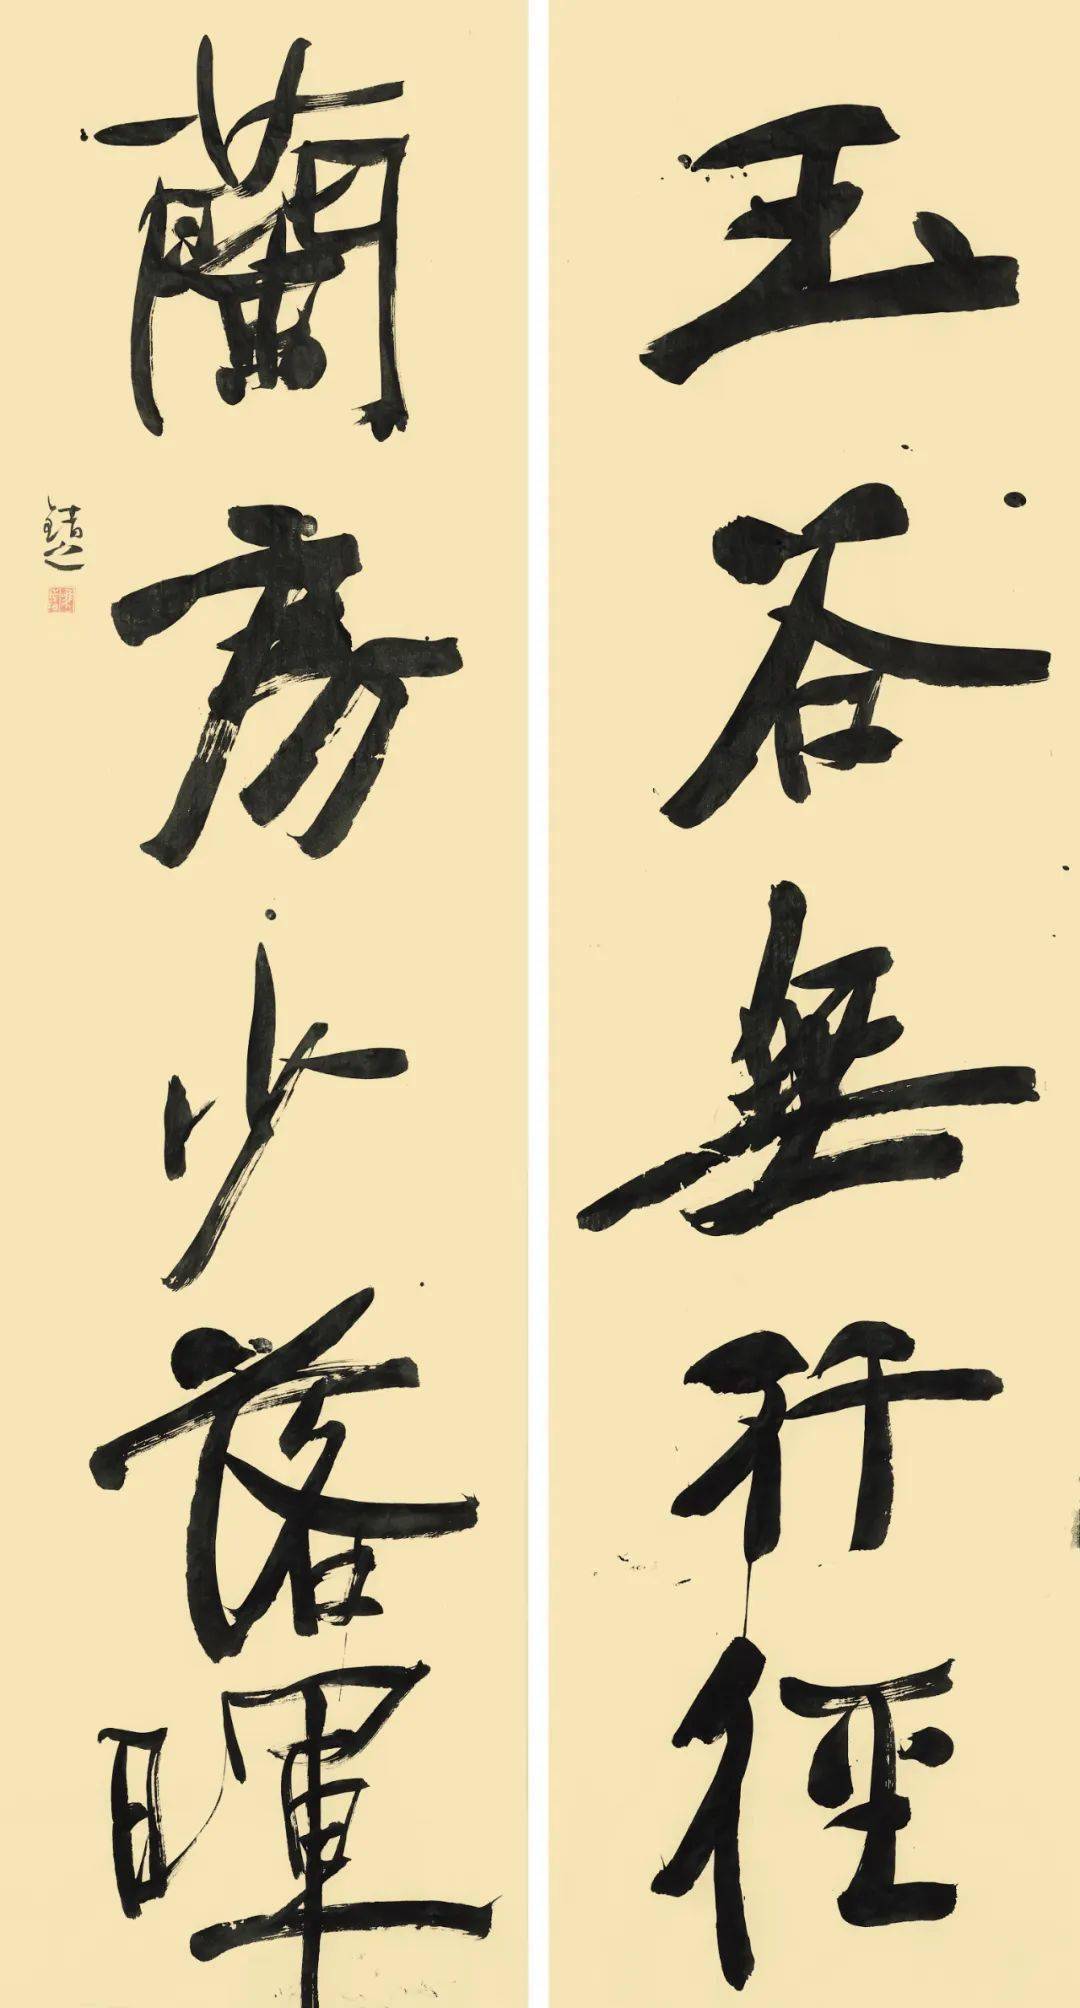 玉谷無行徑
蘭房少落暉
錯之